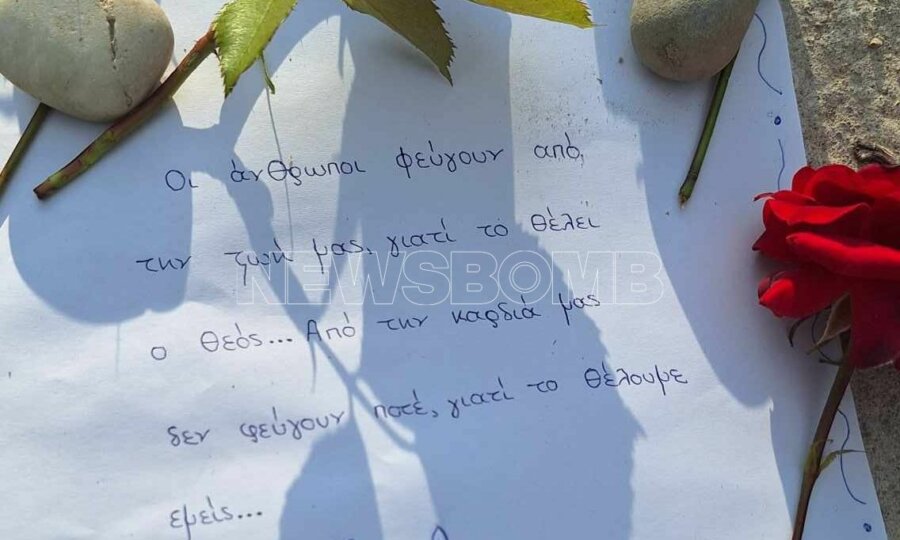 Οι άνθρωποι φεύγουν από,
την ζωή μας, γιατί το θέλει
NEWSBOMB
ο Θεός... Από την καρδιά μας
δεν φεύγουν ποτέ, γιατί το θέλουμε
εμείς...